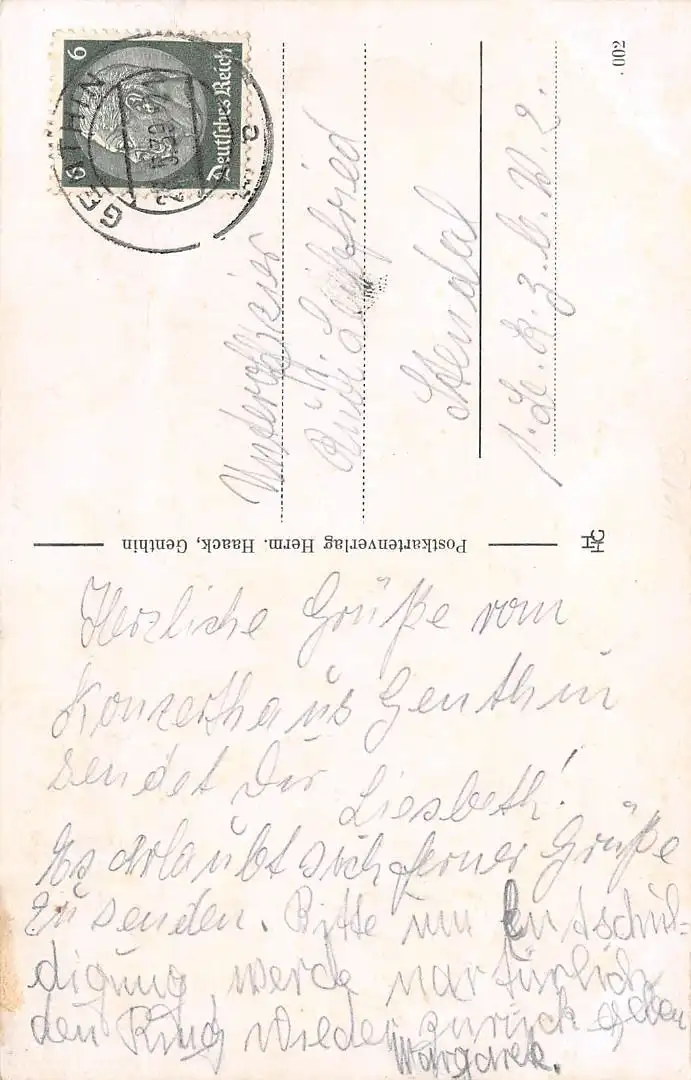 Deutsches Reich
6 6
GENTHIN
a
Unteroffizier
Rudi Leutfried
Stendal
002
Postkartenverlag Herm. Haack, Genthin
Herzliche Grüße vom
Konzerthaus Genthin
sendet Dir Liesbeth!
Es erlaubt sich ferner Grüße
zu senden. Bitte um Entschul-
digung, werde natürlich
den Ring wieder zurück geben
Margarete.